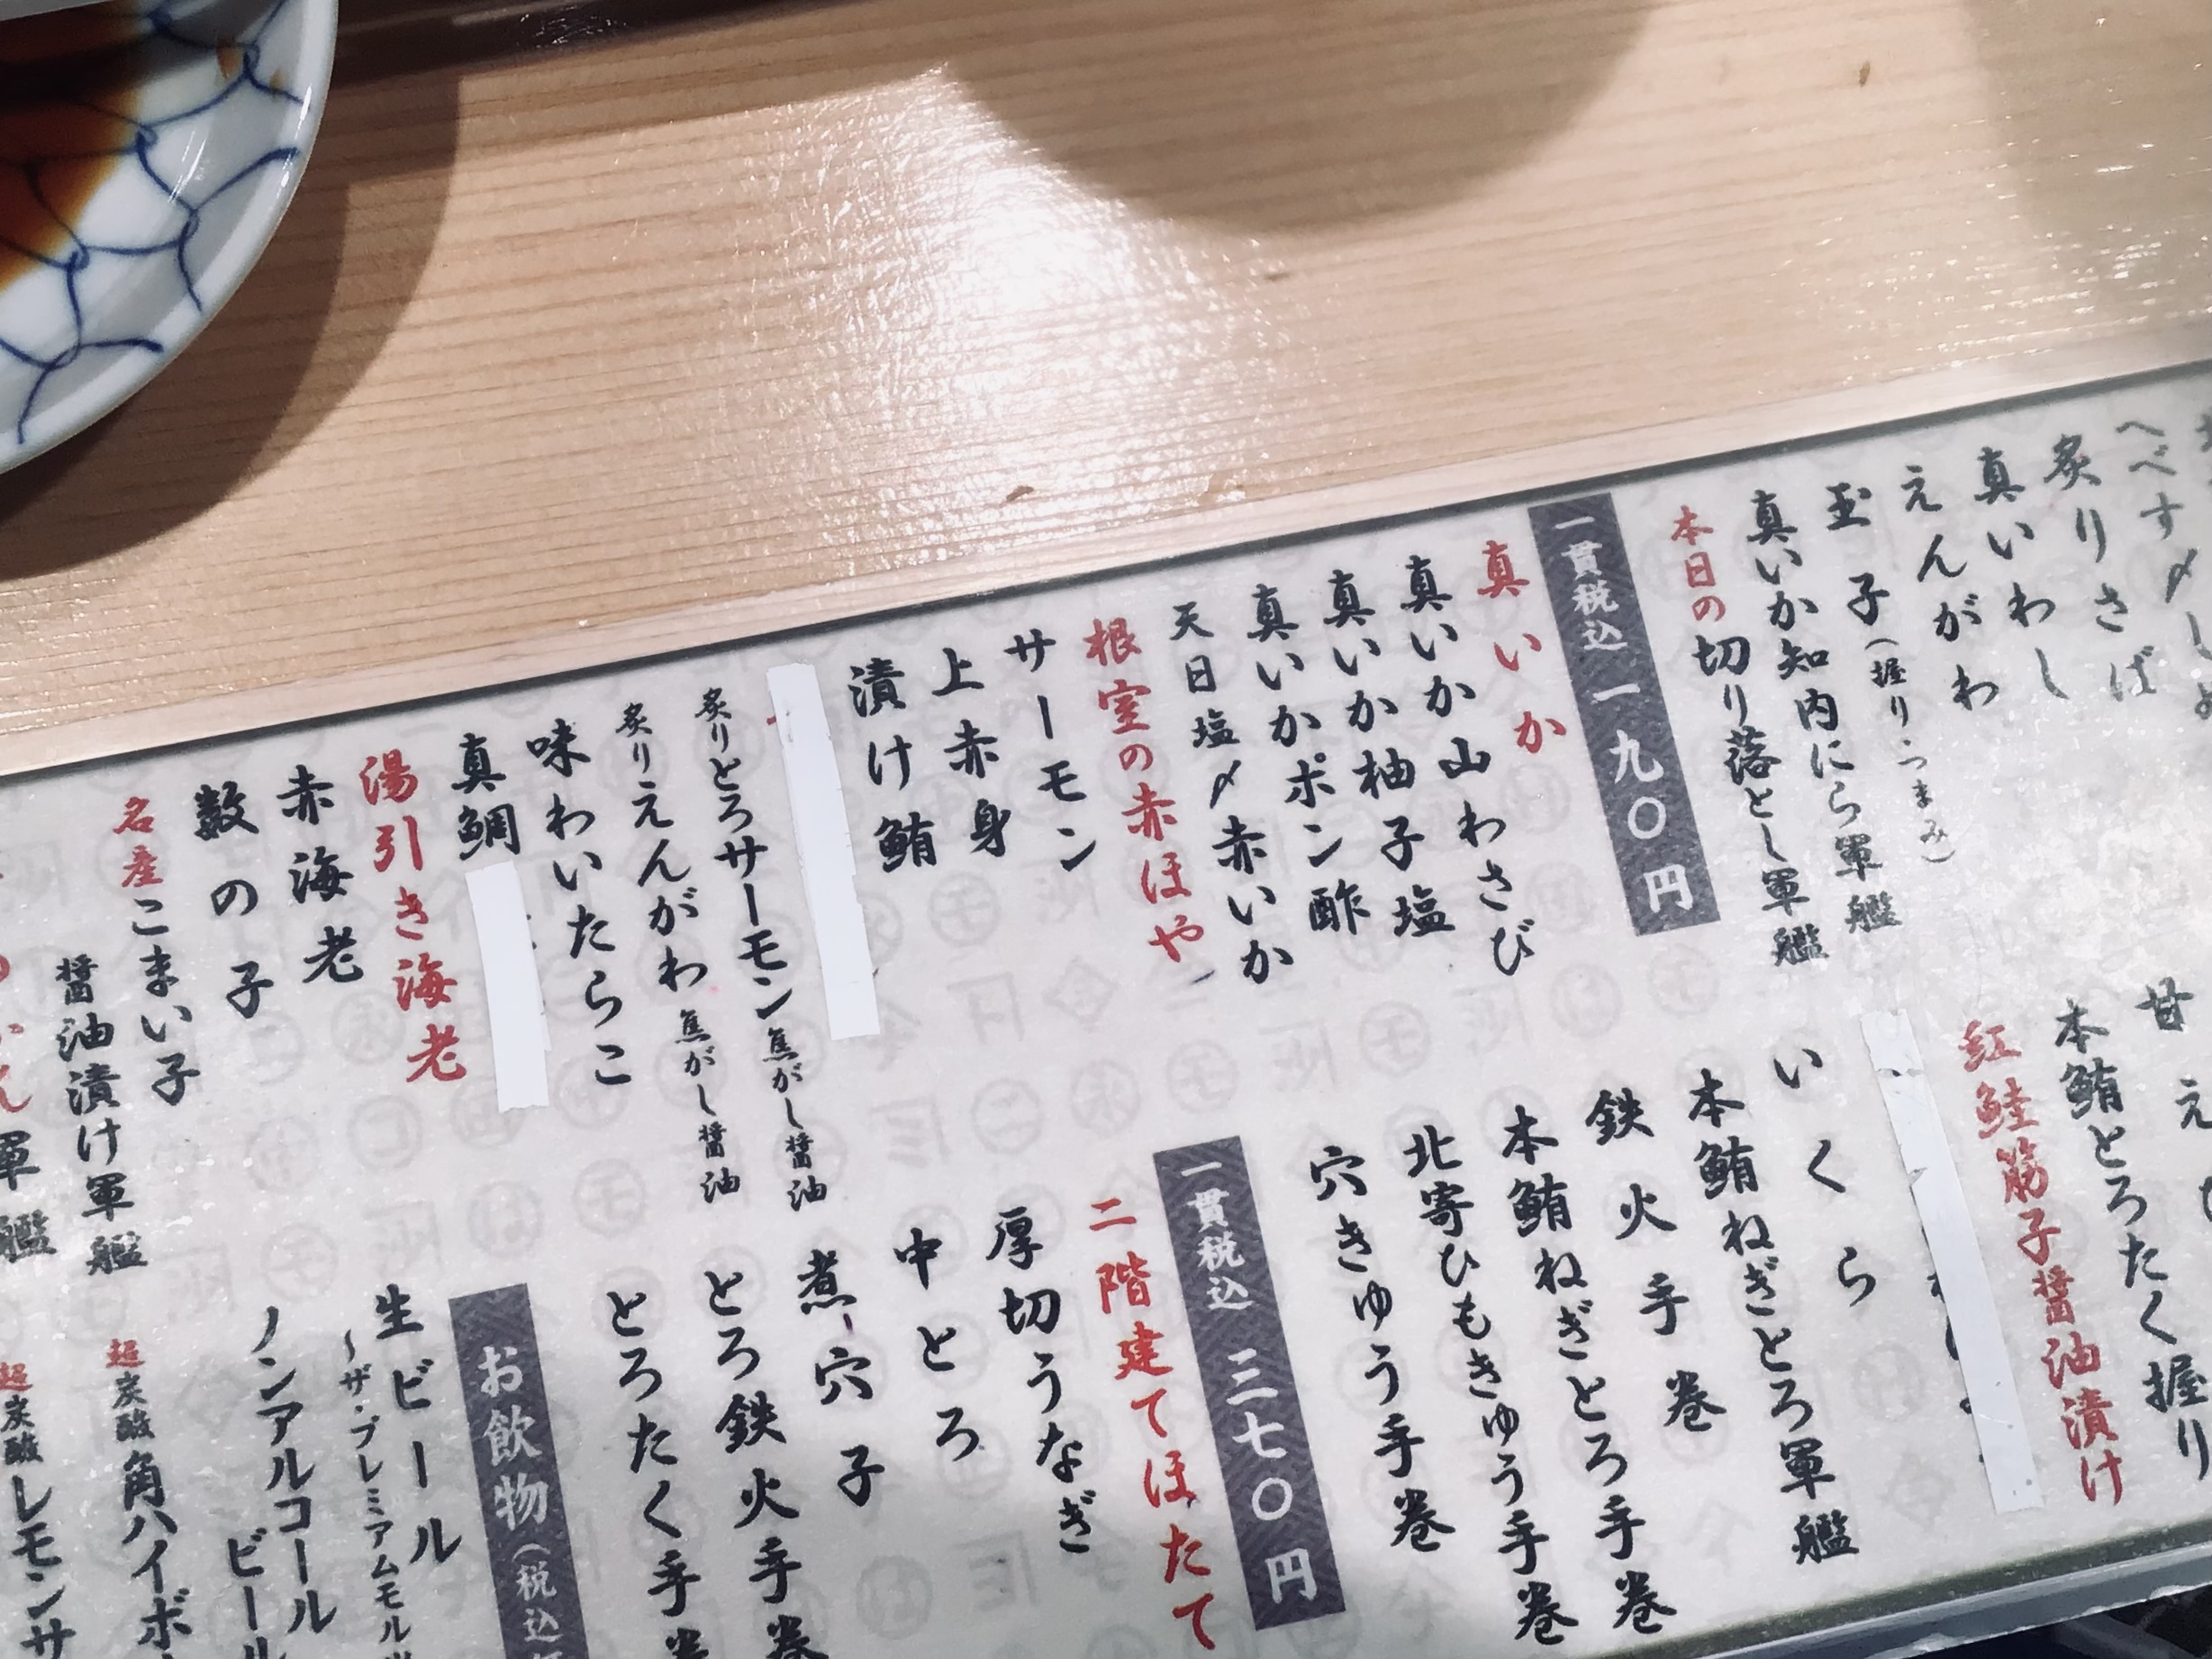 へべす〆
炙りさば
真いわし
えんがわ
玉子(握り・つまみ)
真いか知内にら軍艦
本日の切り落とし軍艦
一貫税込 一九〇円
真いか
真いか山わさび
真いか柚子塩
真いかポン酢
天日塩〆赤いか
根室の赤ほや
サーモン
上赤身
漬け鮪
炙りとろサーモン焦がし醤油
炙りえんがわ焦がし醤油
味わいたらこ
真鯛
湯引き海老
赤海老
数の子
名産こまい子
醤油漬け軍艦
軍艦
甘え
本鮪とろたく握り
紅鮭筋子醤油漬け
いくら
本鮪ねぎとろ軍艦
鉄火手巻
本鮪ねぎとろ手巻
北寄ひもきゅう手巻
穴きゅう手巻
一貫税込 三七〇円
二階建てほたて
厚切うなぎ
中とろ
煮穴子
とろ鉄火手巻
とろたく手巻
お飲物(税込
生ビール
～ザ・プレミアムモル
ノンアルコール
ビール
超炭酸角ハイボ
超炭酸レモンサ